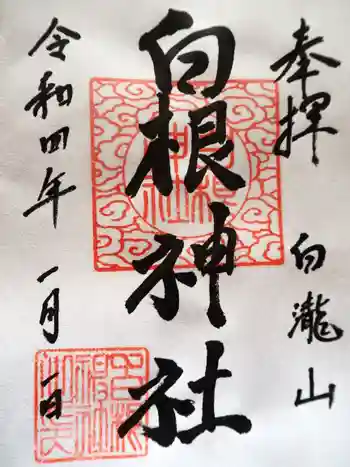 奉拝 白瀧山
白根神社
令和四年 一月一日
白根神社